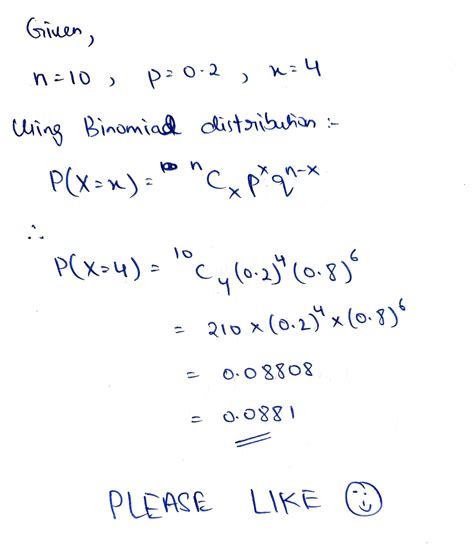 Given,
n=10 , p=0.2 , x=4
Using Binomial distribution :-
P(X=x) = ⁿCₓ pˣ qⁿ⁻ˣ
∴
P(X=4) = ¹⁰C₄ (0.2)⁴ (0.8)⁶
= 210 × (0.2)⁴ × (0.8)⁶
= 0.08808
= 0.0881
PLEASE LIKE ☺